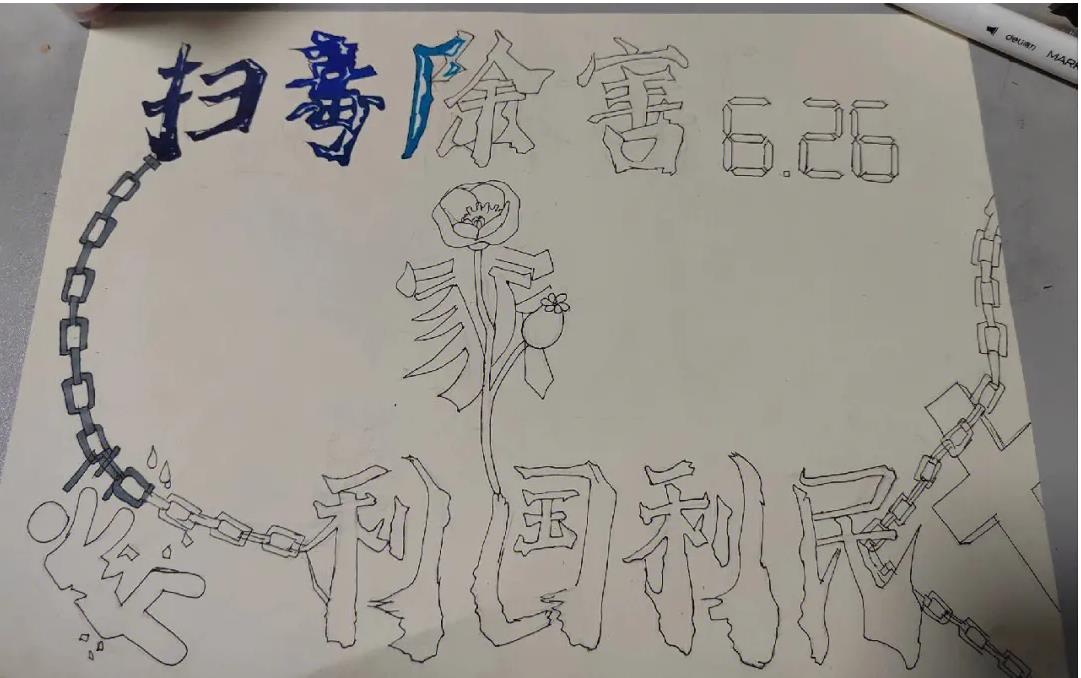 扫毒除害 6.26
MARK
利国利民